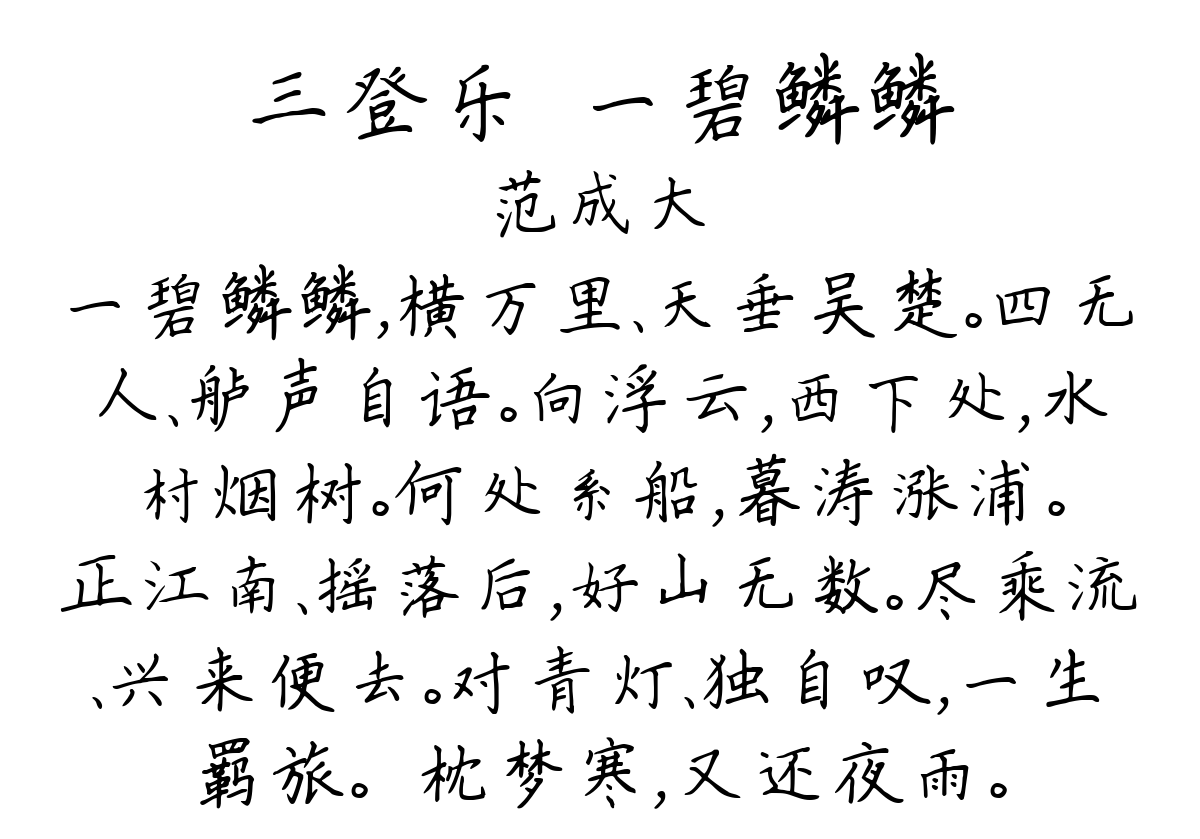 三登乐 一碧鳞鳞
范成大
一碧鳞鳞,横万里、天垂吴楚。四无
人、舻声自语。向浮云,西下处,水
村烟树。何处系船,暮涛涨浦。
正江南、摇落后,好山无数。尽乘流
、兴来便去。对青灯、独自叹,一生
羁旅。 枕梦寒,又还夜雨。